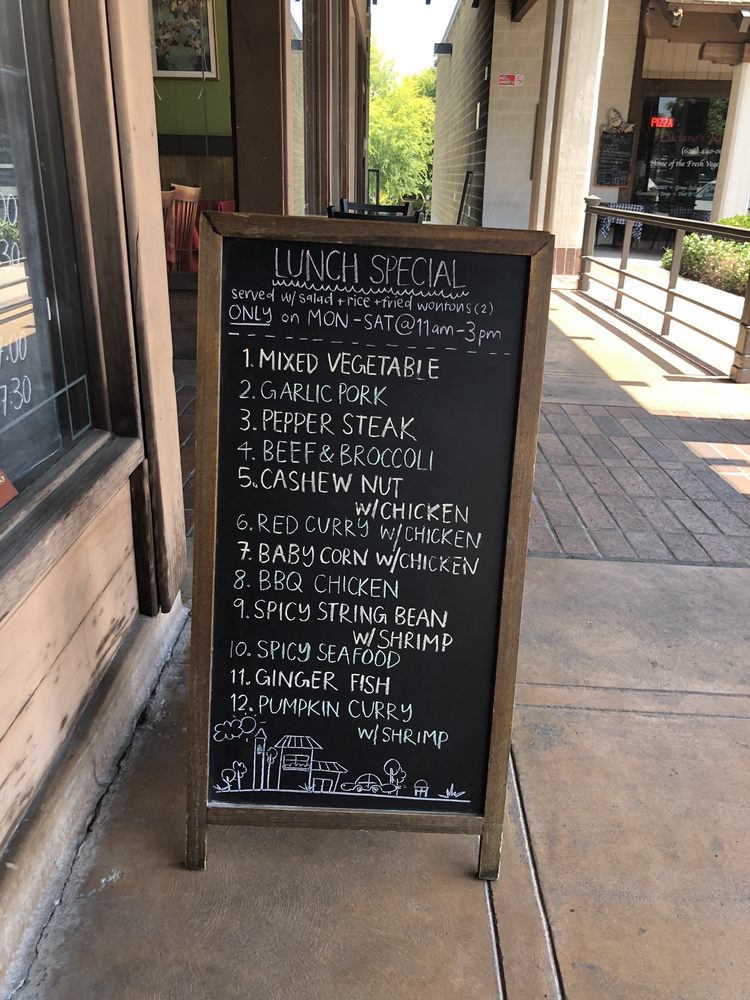 LUNCH SPECIAL
served w/ salad + rice + fried wontons (2)
ONLY on MON - SAT @ 11am - 3pm
1. MIXED VEGETABLE
2. GARLIC PORK
3. PEPPER STEAK
4. BEEF & BROCCOLI
5. CASHEW NUT
W/CHICKEN
6. RED CURRY W/CHICKEN
7. BABY CORN W/CHICKEN
8. BBQ CHICKEN
9. SPICY STRING BEAN
W/SHRIMP
10. SPICY SEAFOOD
11. GINGER FISH
12. PUMPKIN CURRY
W/SHRIMP
PIZZA
Home of the Fresh
7:30